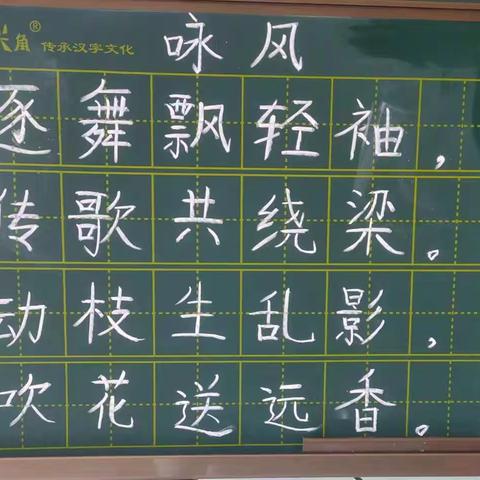 米角® 传承汉字文化
咏风
逐舞飘轻袖，
传歌共绕梁。
动枝生乱影，
吹花送远香。